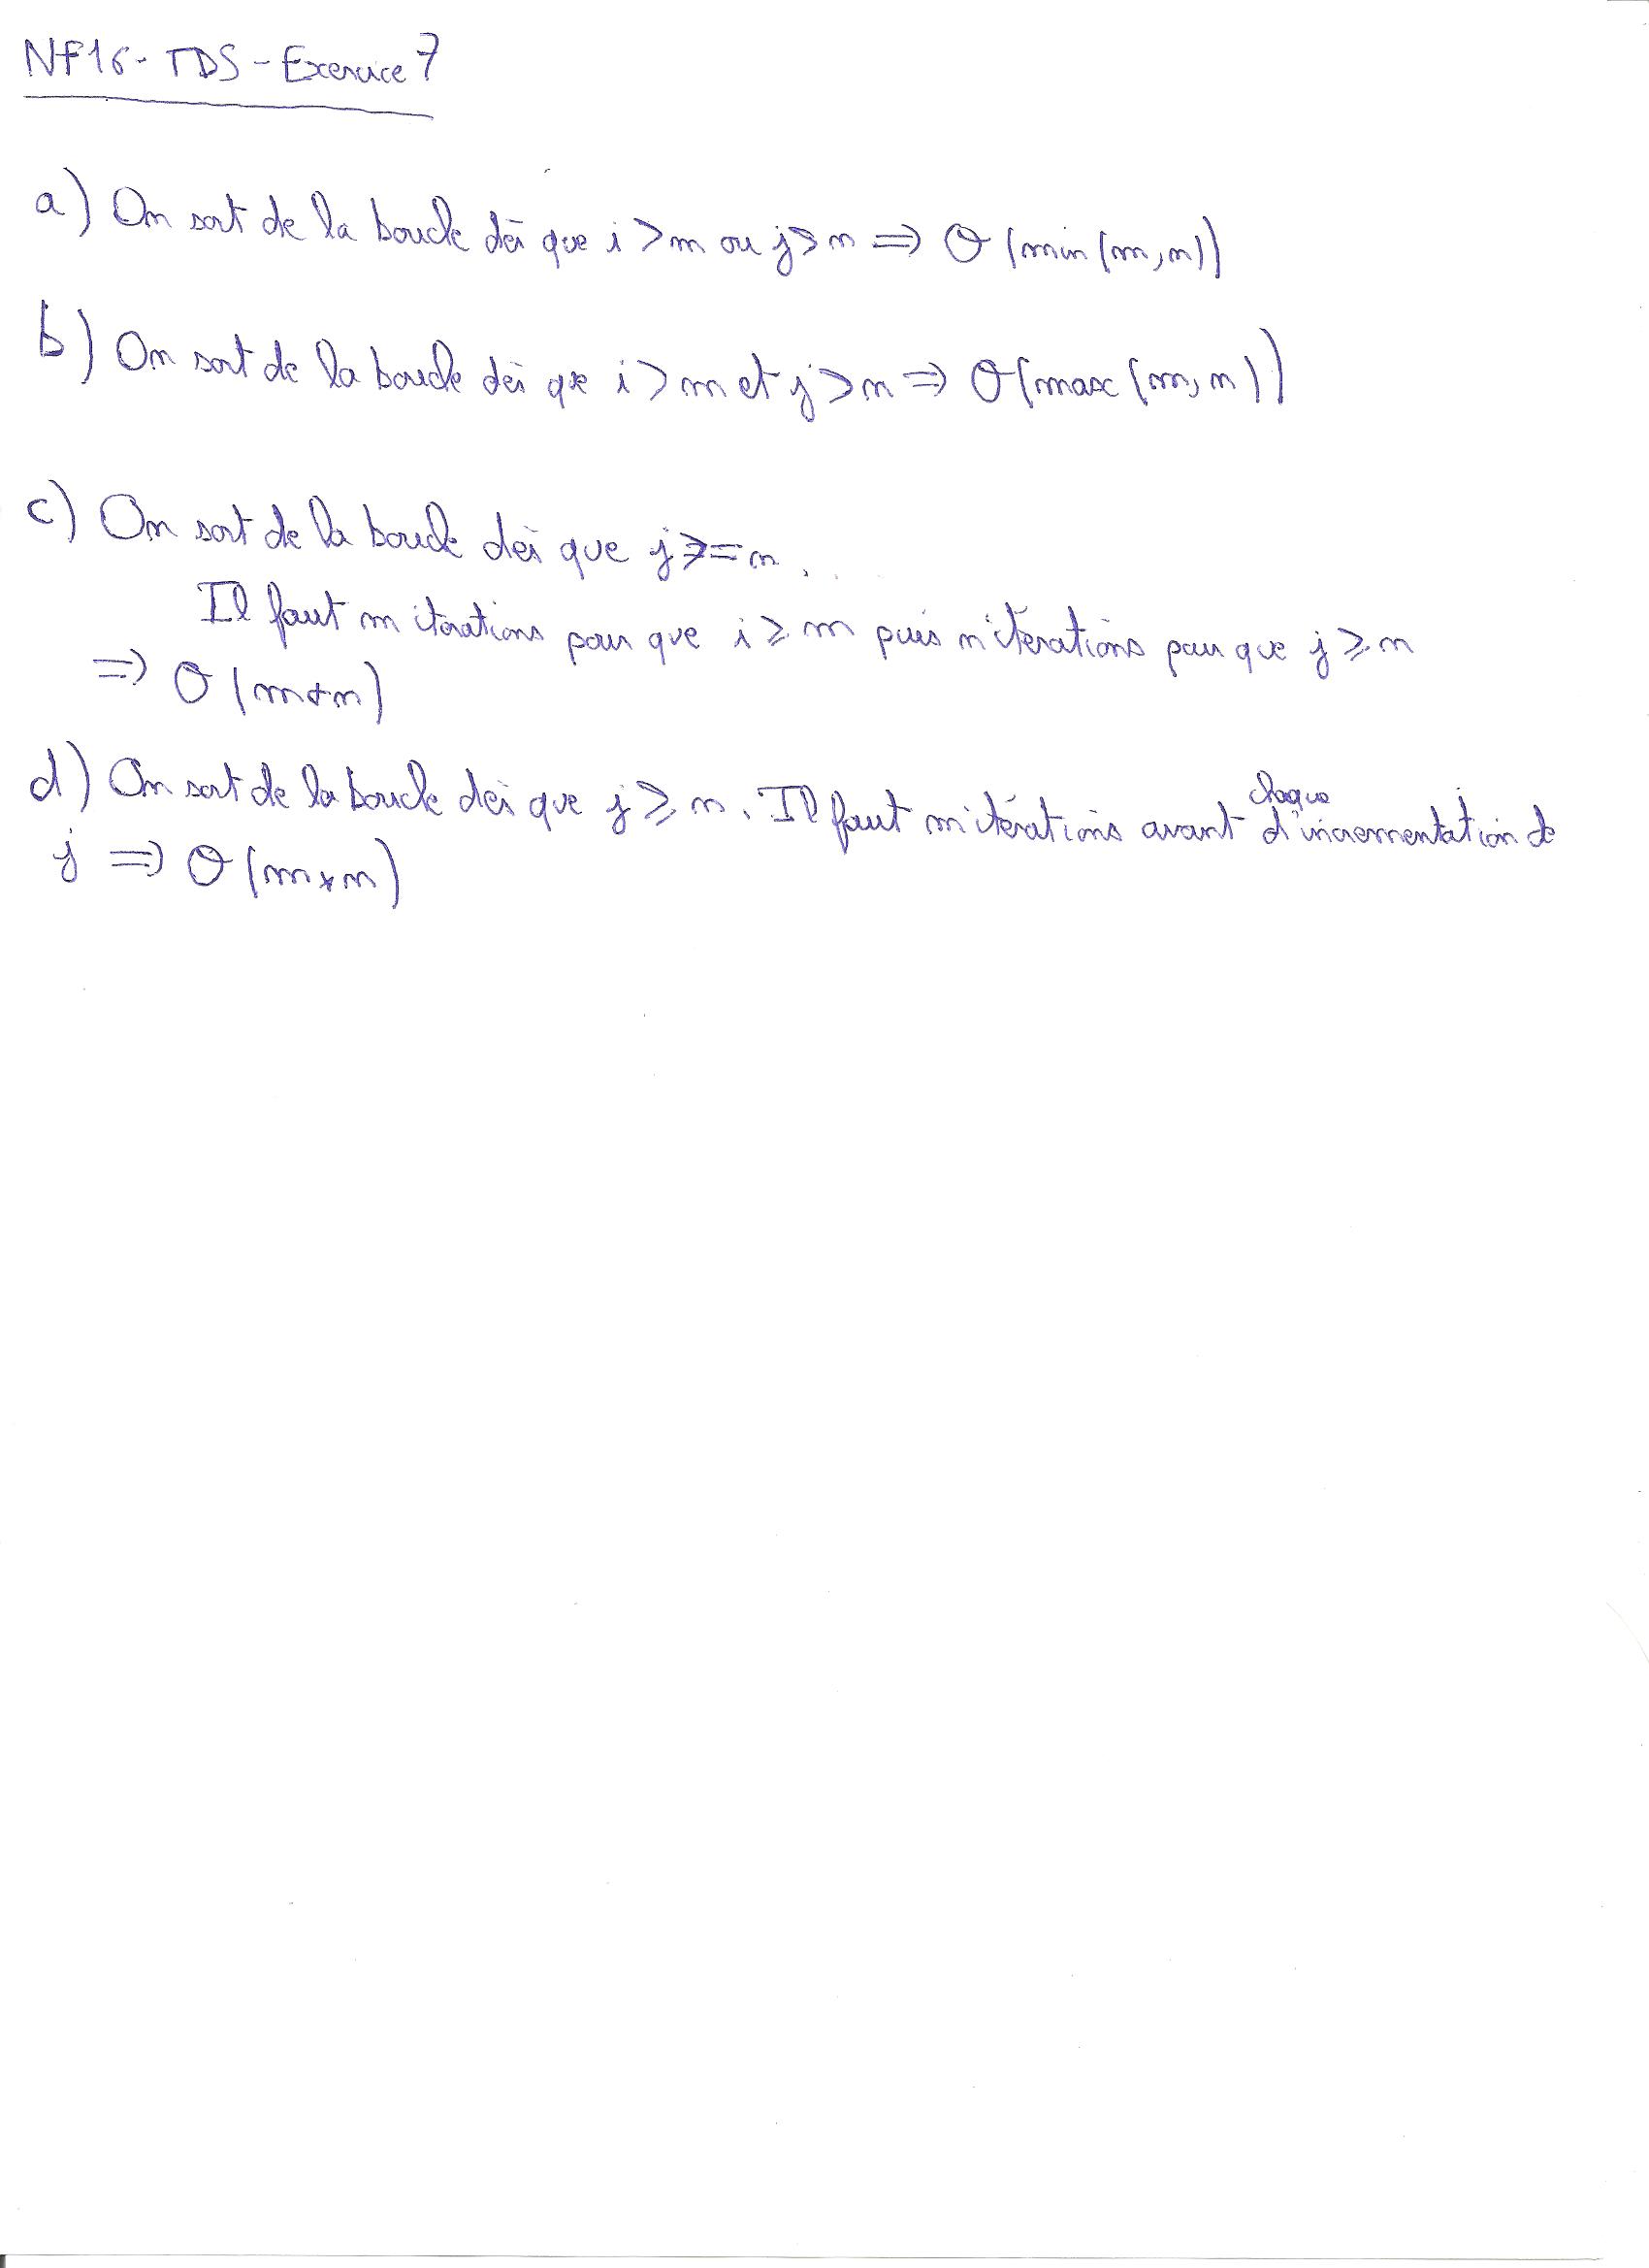 NF16 - TD5 - Exercice 7
a) On sort de la boucle dès que i > m ou j > n => O (min (m, n))
b) On sort de la boucle dès que i > m et j > n => O (max (m, n))
c) On sort de la boucle dès que j >= n.
Il faut m itérations pour que i ≥ m puis n itérations pour que j ≥ n
=> O (m+n)
d) On sort de la boucle dès que j ≥ n. Il faut m itérations avant chaque d'incrémentation de
j => O (m*n)